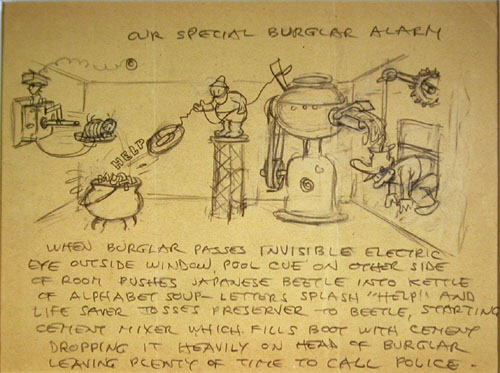 OUR SPECIAL BURGLAR ALARM
HELP
WHEN BURGLAR PASSES INVISIBLE ELECTRIC
EYE OUTSIDE WINDOW, POOL CUE ON OTHER SIDE
OF ROOM PUSHES JAPANESE BEETLE INTO KETTLE
OF ALPHABET SOUP - LETTERS SPLASH "HELP" AND
LIFE SAVER TOSSES PRESERVER TO BEETLE, STARTING
CEMENT MIXER WHICH FILLS BOOT WITH CEMENT
DROPPING IT HEAVILY ON HEAD OF BURGLAR
LEAVING PLENTY OF TIME TO CALL POLICE.